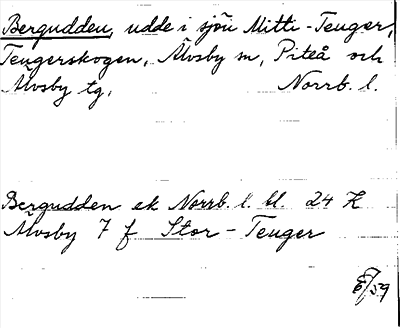 Bergudden, udde i sjön Mitti-Teuger,
Teugerskogen, Älvsby sn, Piteå och
Älvsby tg, Norrb. l.
Bergudden ek Norrb. l. bl. 24 K
Älvsby 7 f Stor-Teuger
E/59